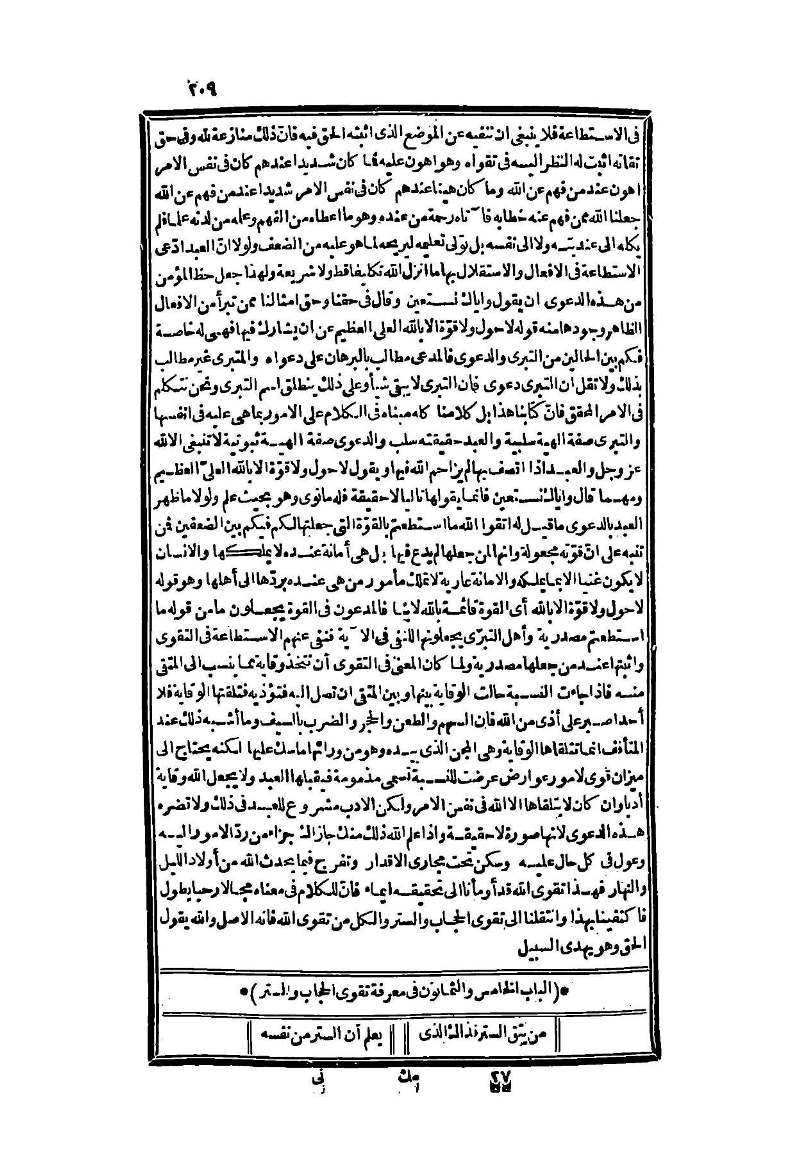 ٢٠٩
فى الاستطاعة فلا ينبغى ان تنفيه عن الموضع الذى اثبته الحق فيه فانّ ذلك منازعة لله وفى حق
تقاته اثبت له النظر اليسه فى تقواه وهو اهون عليه فما كان شديدا عندهم كان فى نفس الامر
اهون عند من فهم عن الله وما كان هينا عندهم كان فى نفس الامر شديدا عند من فهم عن الله
جعلنا الله ممن فهم عنه خطابه فا آتاه رحمة من عنده وهو ما اعطاه من الفهم وعله من لدنه علما فلم
يكله الى عنديته ولا الى نفسه بل تولى تعليمه ليريحه لما هو عليه من الضعف ولولا انّ العبد ادّعى
الاستطاعة فى الافعال والاستقلال بها ما انزل الله تكليفا قط ولا شريعة ولهذا جعل حظ المؤمن
من هذه الدعوى ان يقول واياك نستعين وقال فى حقنا وحق امثالنا ممن تبرأ من الافعال
الظاهر وجودها منه قوله لا حول ولا قوّة الا بالله العلى العظيم عن ان يشارك فيها فهى له خاصة
فكم بين الحالين من التبرى والدعوى فالمدعى مطالب بالبرهان على دعواه والمتبرى غير مطالب
بذلك ولا تقل ان التبرى دعوى فان التبرى لا يبقى شيأ وعلى ذلك ينطلق اسم التبرى ونحن نتكلم
فى الامر المحقق فانّ كتابنا هذا بل كلامنا كله مبناه فى الكلام على الامور بما هى عليه فى انفسها
والتبرى صفة الهية سلبية والعبد حقيقته سلب والدعوى صفة الهية ثبوتية لا تنبغى الا لله
عز وجل والعبد اذا اتصف بها لم يزاحم الله فيها ويقول لا حول ولا قوّة الا بالله العلىّ العظيم
ومهما قال واياك نستعين فانما يقولها تاليا لا حقيقة فله ما نوى وهو بحيث علم ولولا ما ظهر
العبد بالدعوى ما قيل له اتقوا الله ما استطعتم بالقوّة التى جعلها لكم فيكم بين الضعفين فمن
تنبه على انّ قوّته مجعولة وانها لمن جعلها لم يدع فيها بل هى أمانة عنده لا يملكها والانسان
لا يكون غنيا الا بما يملكه والامانة عارية لا تملك مأمور من هى عنده بردّها الى أهلها وهو قوله
لا حول ولا قوّة الا بالله أى القوة قائمة بالله لا بنا فالمدعون فى القوة يجعلون ما من قوله ما
استطعتم مصدرية وأهل التبرّى يجعلونها للنفى فى الآية فنفى عنهم الاستطاعة فى التقوى
واثبتها عند من جعلها مصدرية ولما كان المعنى فى التقوى أن تتخذ وقاية مما ينسب الى المتقى
منه فاذا جاءت النسبة حالت الوقاية بينها وبين المتقى ان تصل اليه فتؤذيه فتلقتها الوقاية فلا
أحد اصبر على أذى من الله فان السهم والطعن والحجر والضرب بالسيف وما أشبه ذلك عند
المثاقف انما تتلقاها الوقاية وهى المجن الذى بيده وهو من ورائها ماسك عليها لكنه يحتاج الى
ميزان قوى لامور عوارض عرضت للنسبة تسمى مذمومة فيقبلها العبد ولا يجعل الله وقاية
أدبا وان كان لا يتلقاها الا الله فى نفس الامر ولكن الادب مشروع للعبد فى ذلك ولا تضره
هذه الدعوى لانها صورة لا حقيقة واذا علم الله ذلك منك جازاك جزاء من ردّ الامور اليه
وعول فى كل حال عليه وسكن تحت مجارى الاقدار وتفرج فيما يحدث الله من أولاد الليل
والنهار فهذا تقوى الله قد أومأنا الى تحقيقه ايماء فانّ للكلام فى معناه مجالا رحبا يطول
فاكتفينا بهذا وانتقلنا الى تقوى الحجاب والستر والكل من تقوى الله فانه الاصل والله يقول
الحق وهو يهدى السبيل
*(الباب الخامس والثمانون فى معرفة تقوى الحجاب والستر)*
من يتق الستر فذاك الذى يعلم أن الستر من نفسه
٢٧